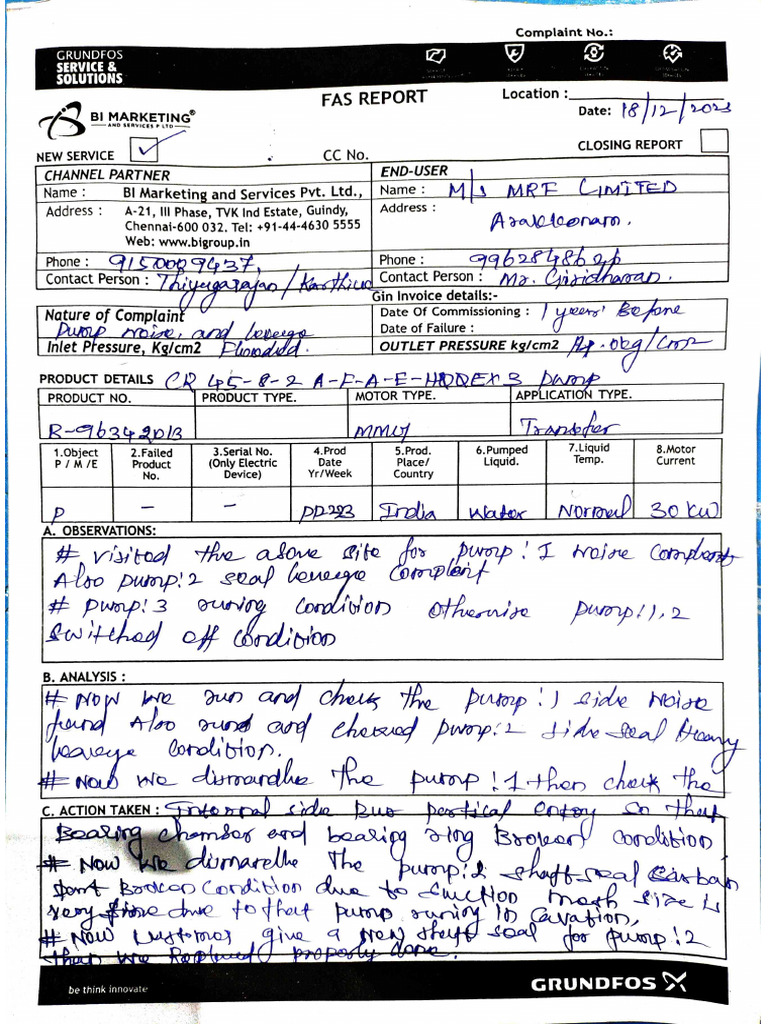 Complaint No.:
GRUNDFOS
SERVICE &
SOLUTIONS
FAS REPORT
Location :
BI MARKETING®
AND SERVICES P LTD
Date: 18/12/2023
NEW SERVICE ✓
CC No.
CLOSING REPORT
CHANNEL PARTNER
Name : BI Marketing and Services Pvt. Ltd.,
Address : A-21, III Phase, TVK Ind Estate, Guindy,
Chennai-600 032. Tel: +91-44-4630 5555
Web: www.bigroup.in
Phone : 9150009437,
Contact Person : Thiyugarajan / Karthick
END-USER
Name : M/s MRF LIMITED
Address :
Arakkonam.
Phone : 9962848626
Contact Person : Mr. Giridharan.
Nature of Complaint
Pump noise, and lekege
Inlet Pressure, Kg/cm2 Flooded.
Gin Invoice details:-
Date Of Commissioning : 1 years Before
Date of Failure :
OUTLET PRESSURE kg/cm2
PRODUCT DETAILS CR 45-8-2 A-F-A-E-HQQE x 3 pump
PRODUCT NO. PRODUCT TYPE. MOTOR TYPE. APPLICATION TYPE.
B-96342013 MMG Transfer
1.Object P / M /E
2.Failed Product No.
3.Serial No. (Only Electric Device)
4.Prod Date Yr/Week
5.Prod. Place/ Country
6.Pumped Liquid.
7.Liquid Temp.
8.Motor Current
P - - India Water Normal 30 KW
A. OBSERVATIONS:
# visited the above site for pump:1 noise complaint
Also pump:2 seal lekege complent
# pump:3 runing condition otherwise pump:1,2
switched off condition
B. ANALYSIS :
# Now we run and check the pump:1 side noise
found Also rund and checked pump:2 side seal Heavy
lekege condition.
# Now we dismandle the pump:1 then check the
C. ACTION TAKEN : Internal side partical entry so that
Bearing chamber and bearing ring Broken condition
# Now we dismandle The pump:2 shaft seal carban
Broken condition due to suction mesh size is
very fine due to that pump runing in cavation,
# Now customer give a new shaft seal for pump:2
then we Replaced properly done.
be think innovate
GRUNDFOS